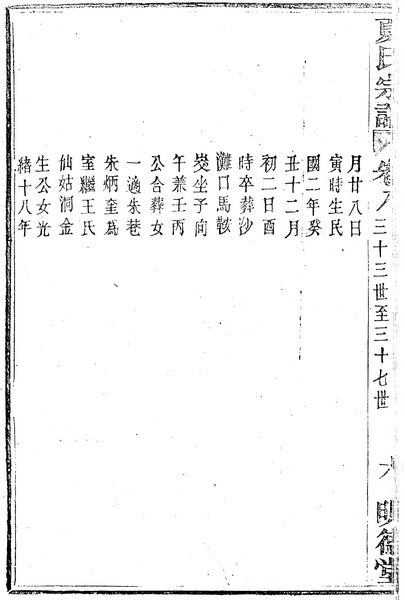 夏氏宗譜 卷八 三十三世至三十七世 六 明德堂
月廿八日
寅時生民
國二年癸
丑十二月
初二日酉
時卒葬沙
灘口馬鞍
癹坐子向
午兼壬丙
公合葬女
一適朱巷
朱炳奎為
室繼王氏
仙姑洞金
生公女光
緒十八年